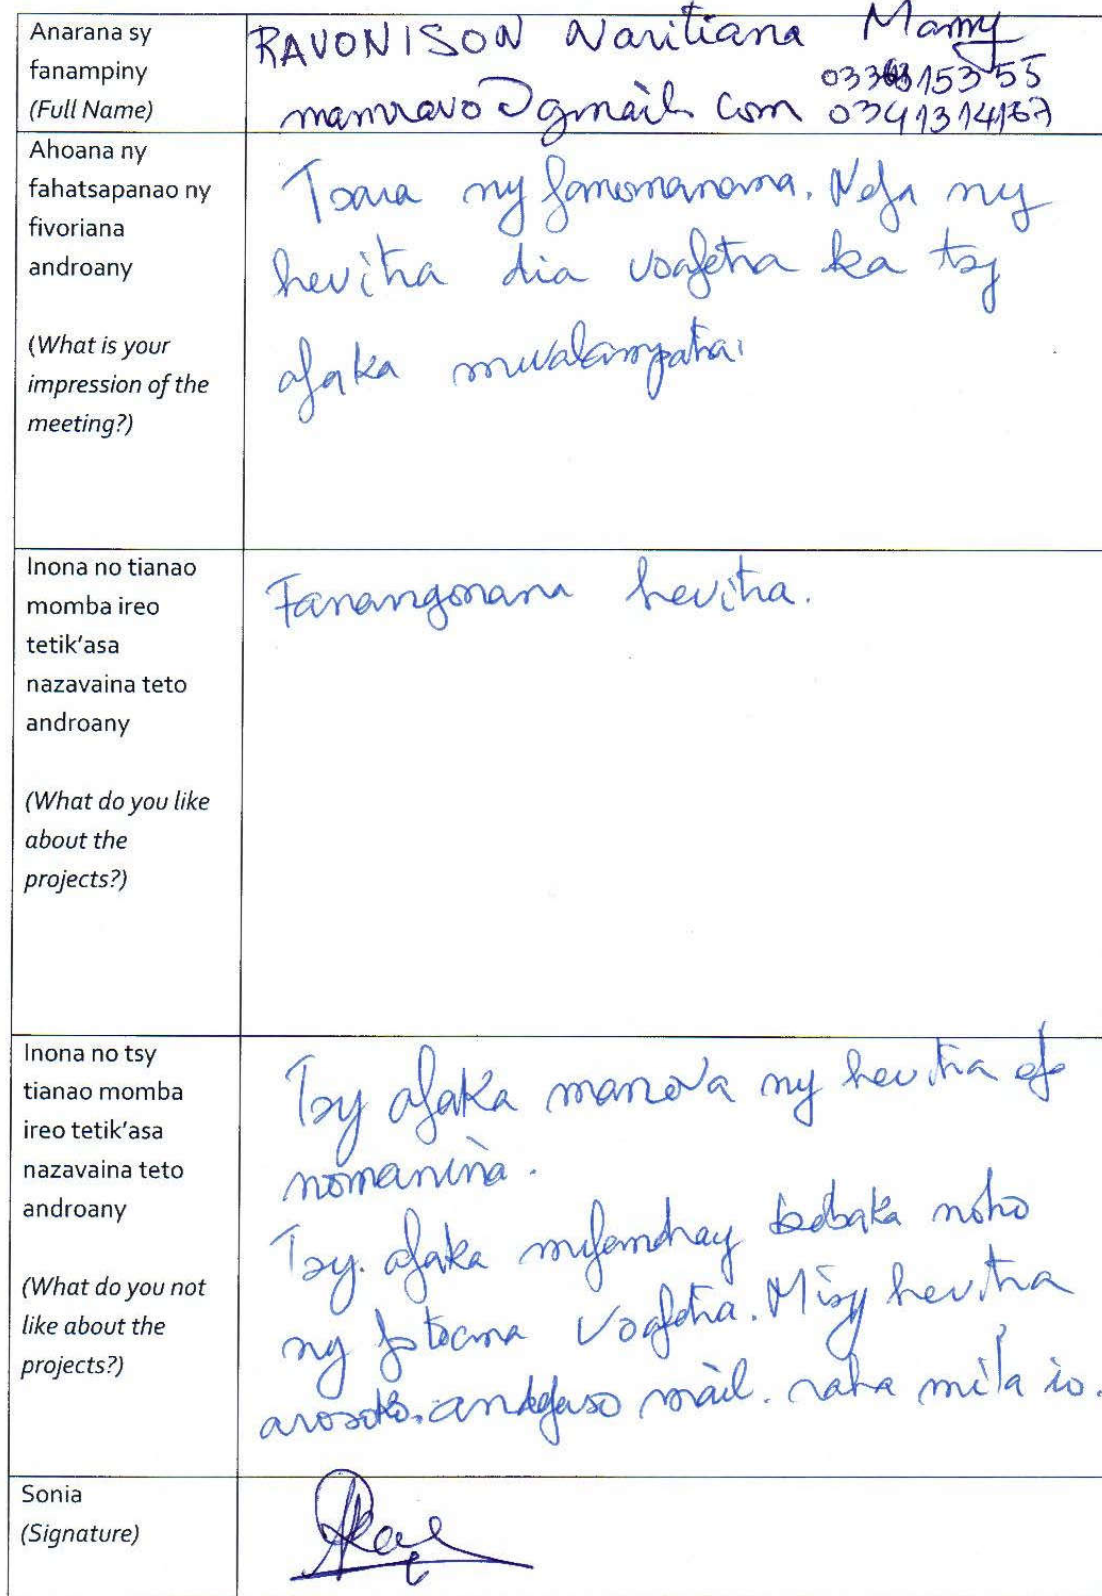 Anarana sy
fanampiny
(Full Name)
RAVONISON Naritiana Mamy
15355
mamravo@gmail.com 0341314167
Ahoana ny
fahatsapanao ny
fivoriana
androany
(What is your
impression of the
meeting?)
Tsara ny fanomanana. Nefa ny
hevitra dia voafetra ka tsy
afaka mivalampatra.
Inona no tianao
momba ireo
tetik'asa
nazavaina teto
androany
(What do you like
about the
projects?)
Fanangonana hevitra.
Inona no tsy
tianao momba
ireo tetik'asa
nazavaina teto
androany
(What do you not
like about the
projects?)
Tsy afaka manova ny hevitra efa
nomanina.
Tsy afaka mifandray noho
ny fotoana voafetra. Misy hevitra
mail. raha mila io.
Sonia
(Signature)